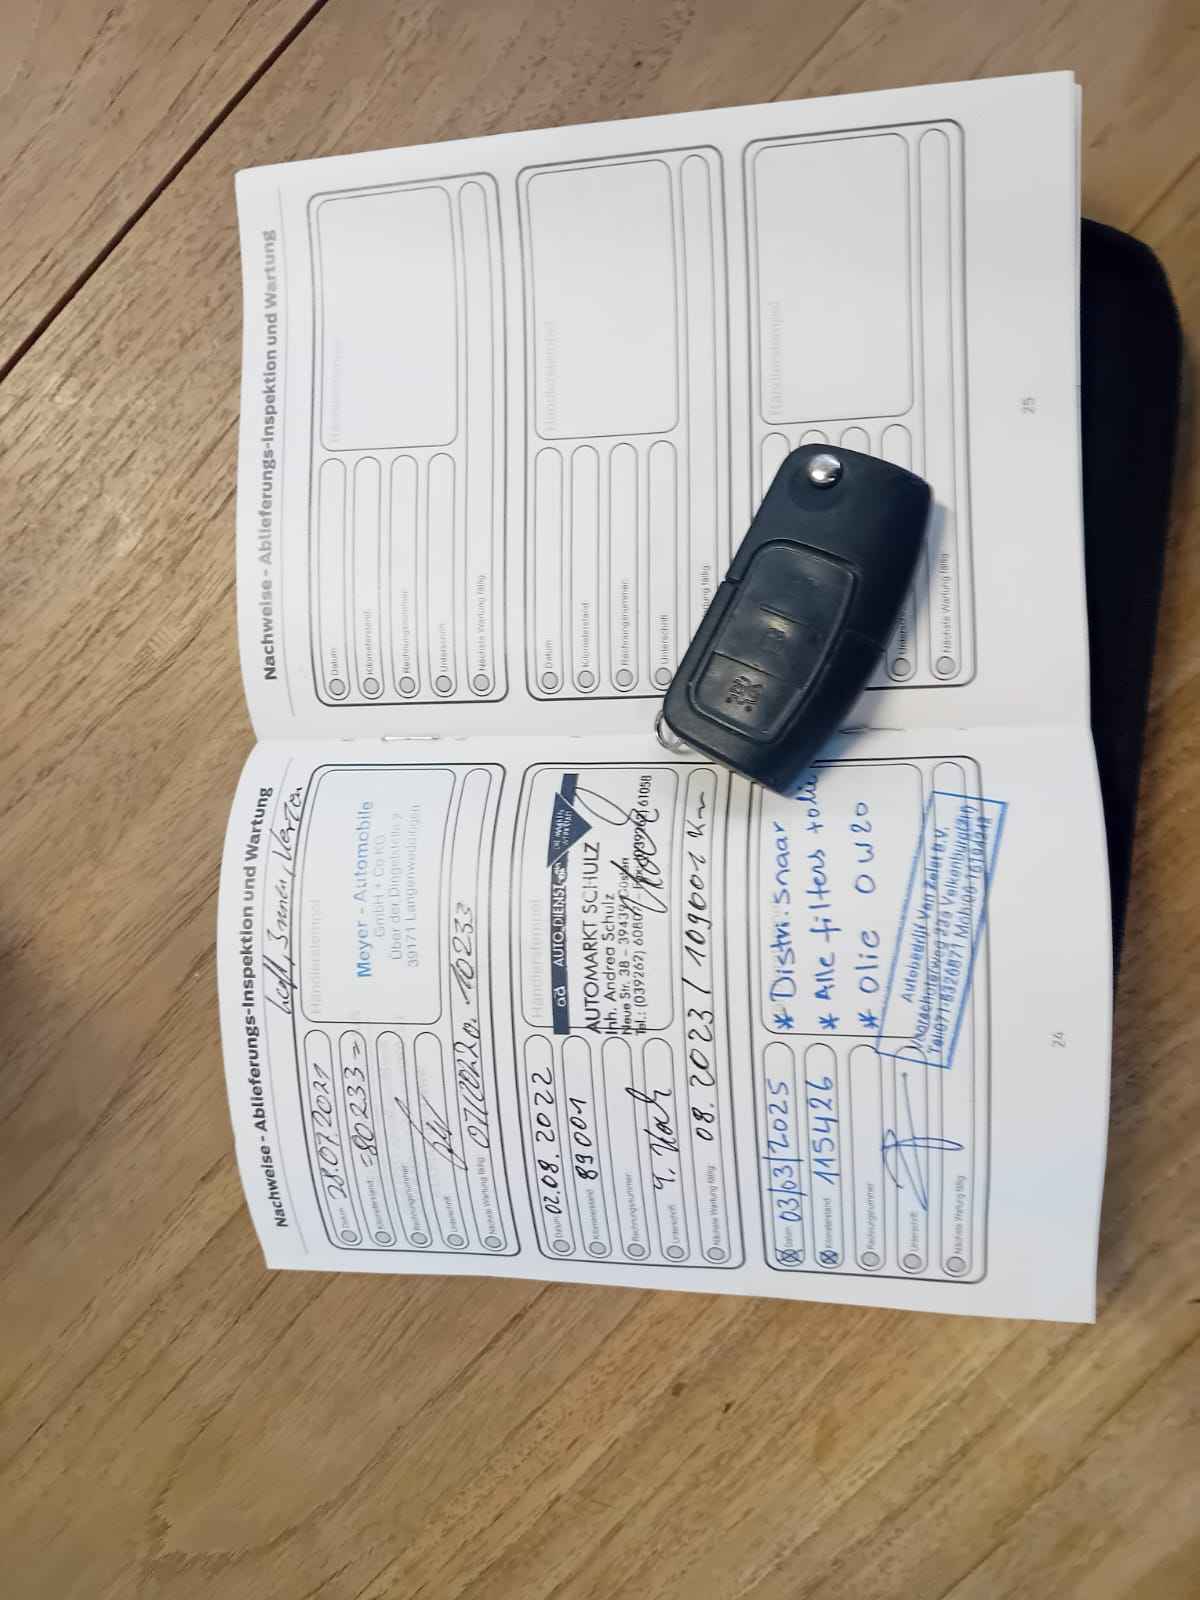 Nachweise - Ablieferungs-Inspektion und Wartung
Datum 28.07.2021
Kilometerstand 80233
Rechnungsnummer
Unterschrift
Nächste Wartung fällig
Händlerstempel
Meyer - Automobile
GmbH + Co KG
Über der Dingelstelle 2
39171 Langenweddingen
Datum 02.08.2022
Kilometerstand 89001
Rechnungsnummer
Unterschrift
Nächste Wartung fällig 08.2023 / 109001 Km
Händlerstempel
ad AUTO-DIENST
AUTOMARKT SCHULZ
Inh. Andrea Schulz
Neue Str. 38 – 39439 Güsten
Tel.: (039262) 61058
Datum 03/03/2025
Kilometerstand 115426
Rechnungsnummer
Unterschrift
Nächste Wartung fällig
* Distri.snaar
* Alle filters + olie
* olie 0W20
Autobedrijf Van Zelst B.V.
Voorschoterweg 23a Valkenburg (ZH)
24
Nachweise - Ablieferungs-Inspektion und Wartung
Datum
Kilometerstand
Rechnungsnummer
Unterschrift
Nächste Wartung fällig
Händlerstempel
Datum
Kilometerstand
Rechnungsnummer
Unterschrift
Händlerstempel
Unterschrift
Nächste Wartung fällig
Händlerstempel
25